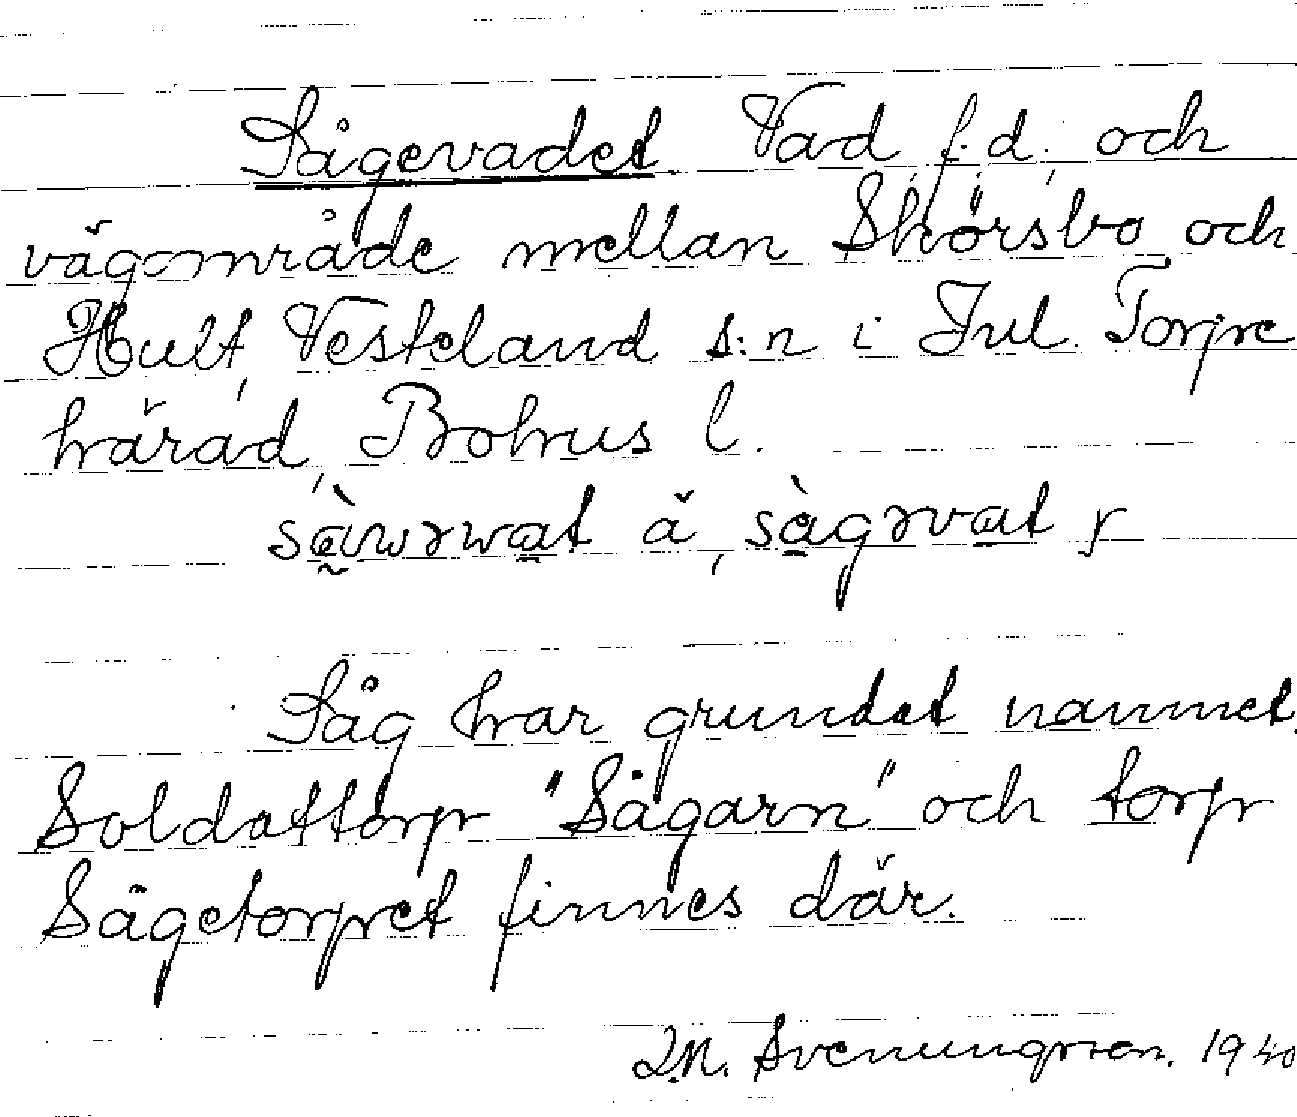 Sågevadet Vad f.d. och
vägområde mellan Skörsbo och
Hult, Vesteland s:n i Jnl. Torpe
härad, Bohus l.
Såg har grundat namnet.
Soldattorp "Sågarn" och torp
Sågetorpet finnes där.
Svenungsson. 1940